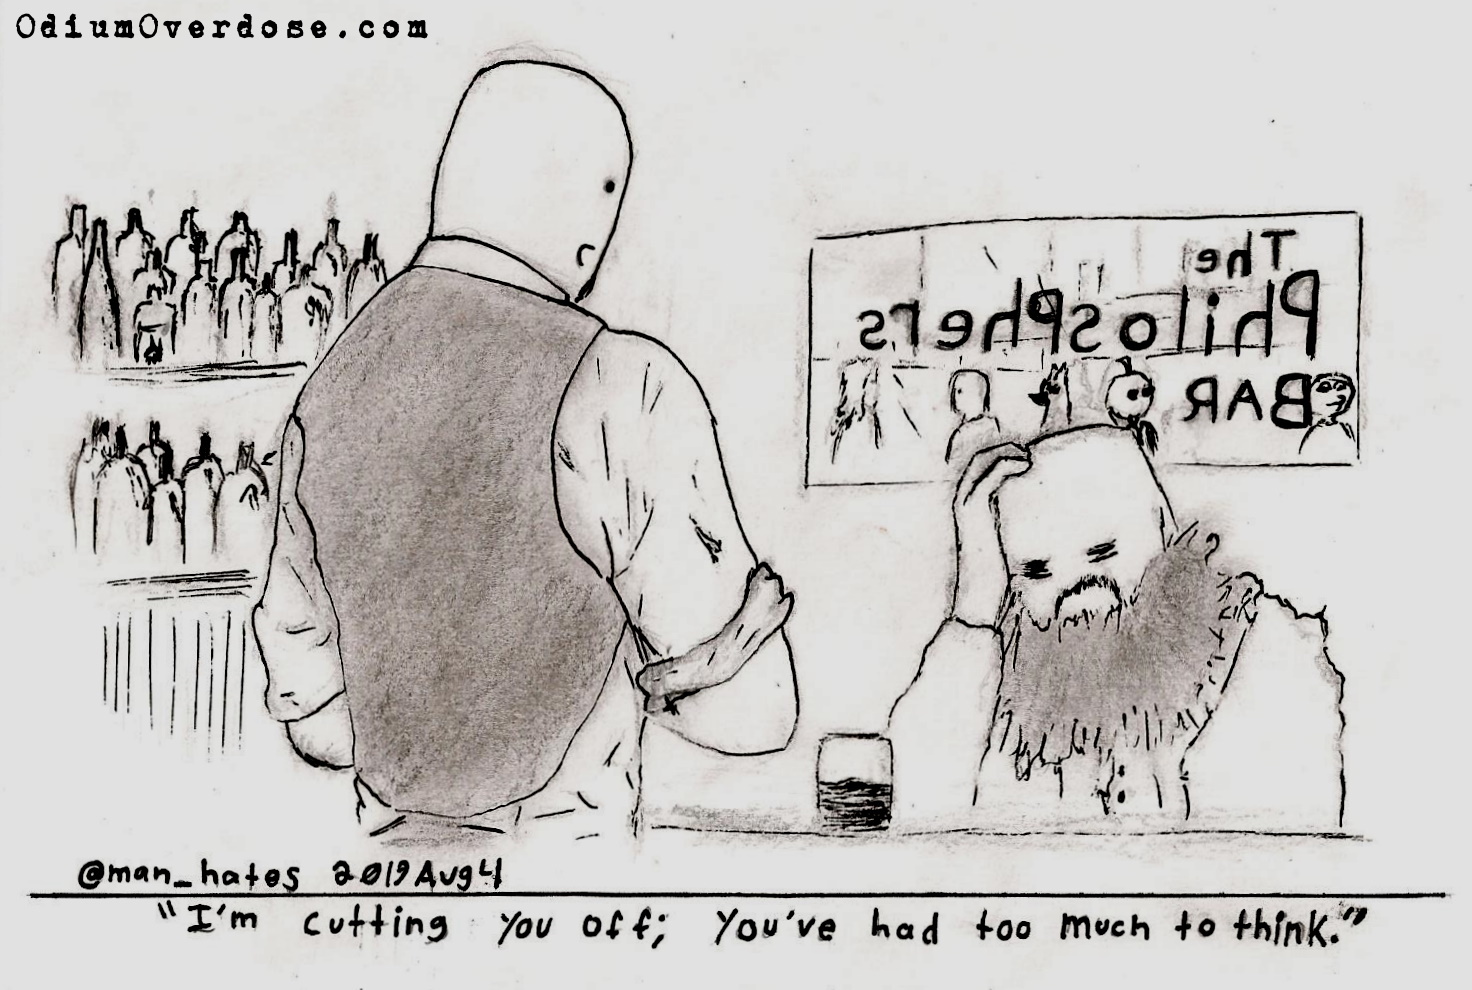 OdiumOverdose.com
The
PhilosPhers
BAR
@man_hates 2019Aug4
"I'm cutting you off; you've had too much to think."